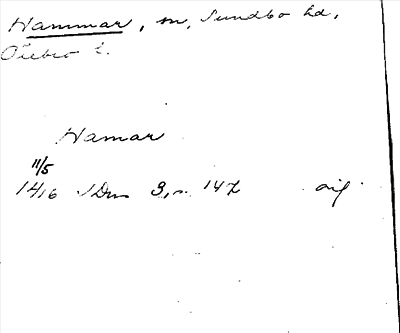 Hammar, sn, Sundbo hd,
Örebro l.
Hamar
11/5
1416 SDns 3, s. 147 or